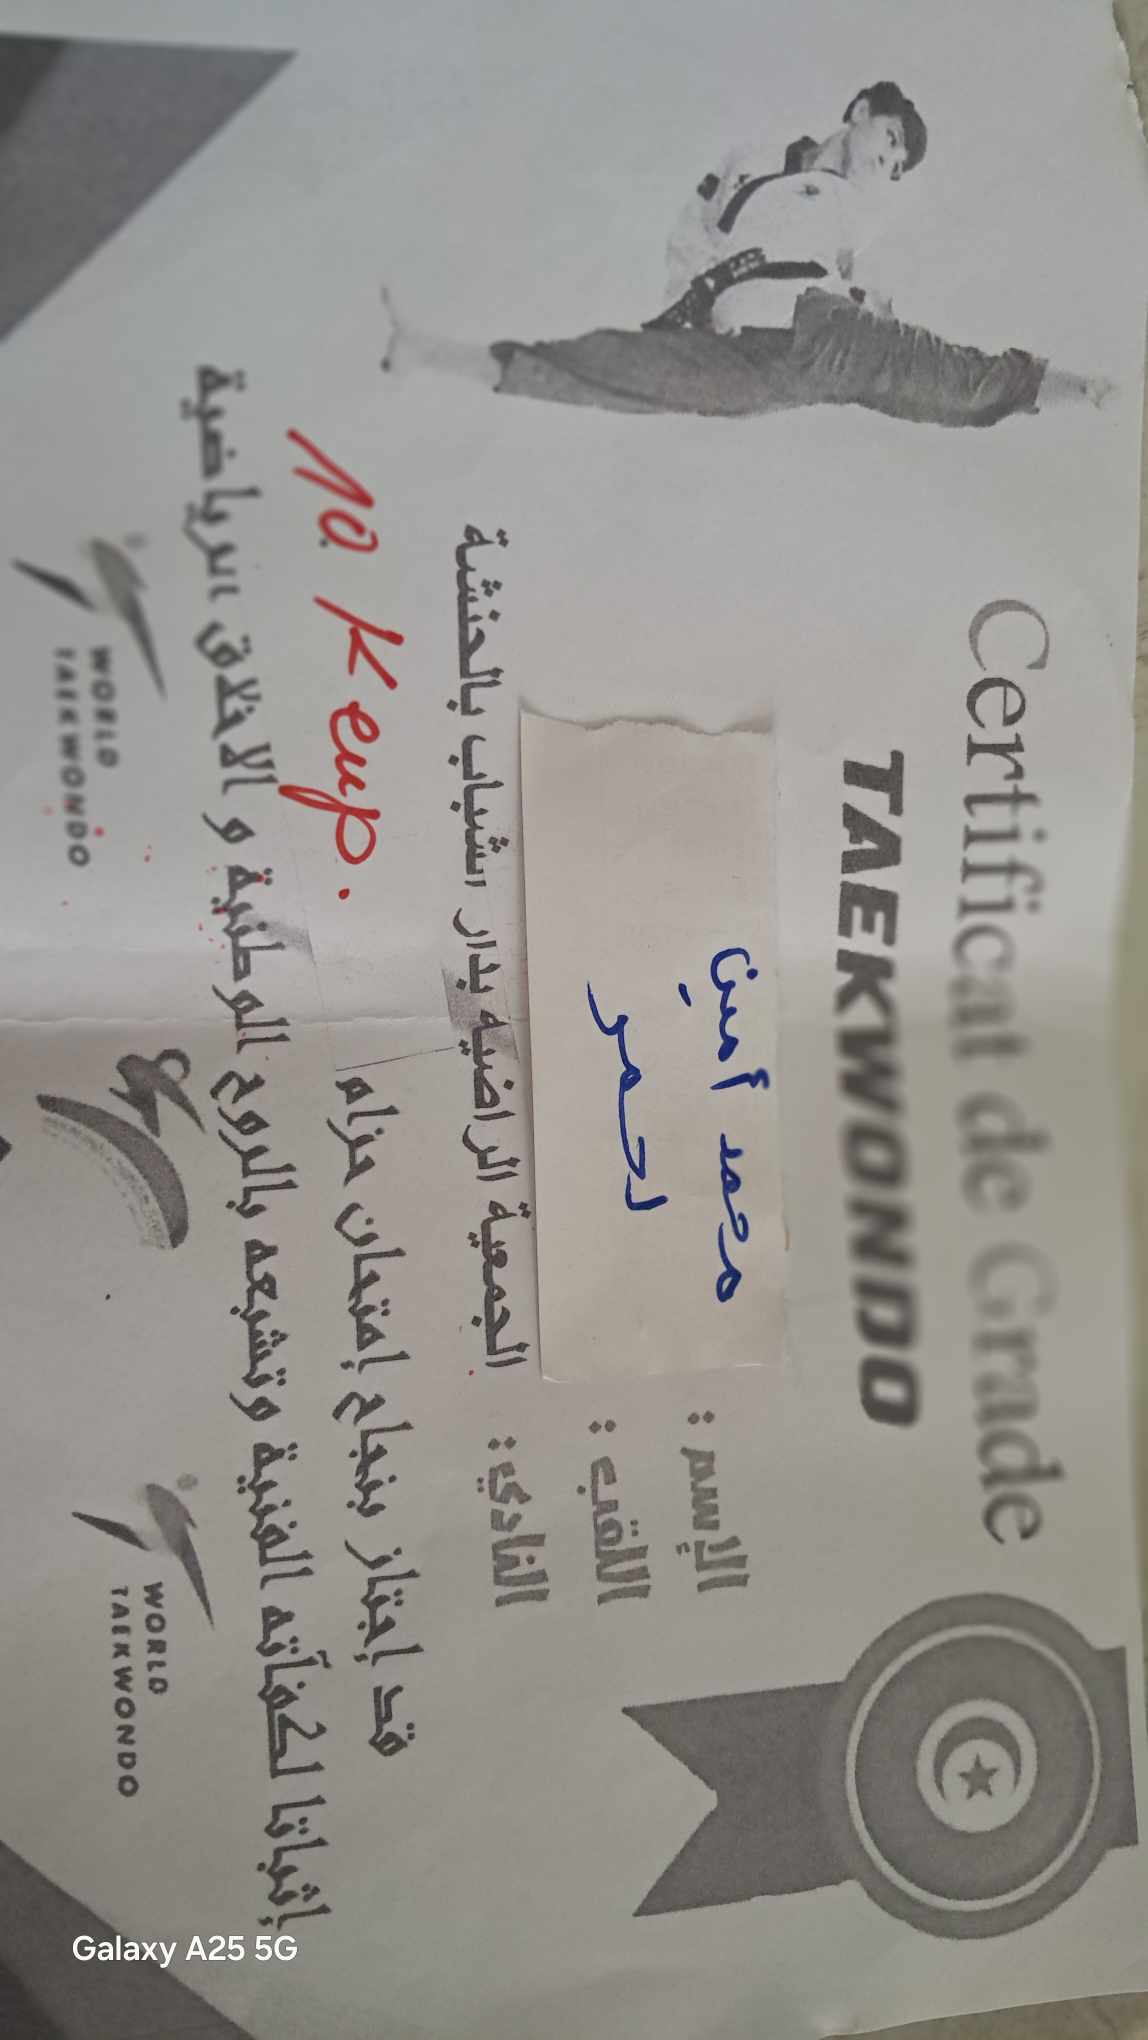 Certificat de Grade
TAEKWONDO
الإسم : محمد أمين
اللقب : لحمر
النادي : الجمعية الراضيه بدار الشباب بالحنشة
قد إجتاز بنجاح إمتحان حزام 10 Keup.
إثباتا لكفآته الفنية وتشبعه بالروح الوطنية و الاخلاق الرياضية
WORLD
TAEKWONDO
WORLD
TAEKWONDO
Galaxy A25 5G